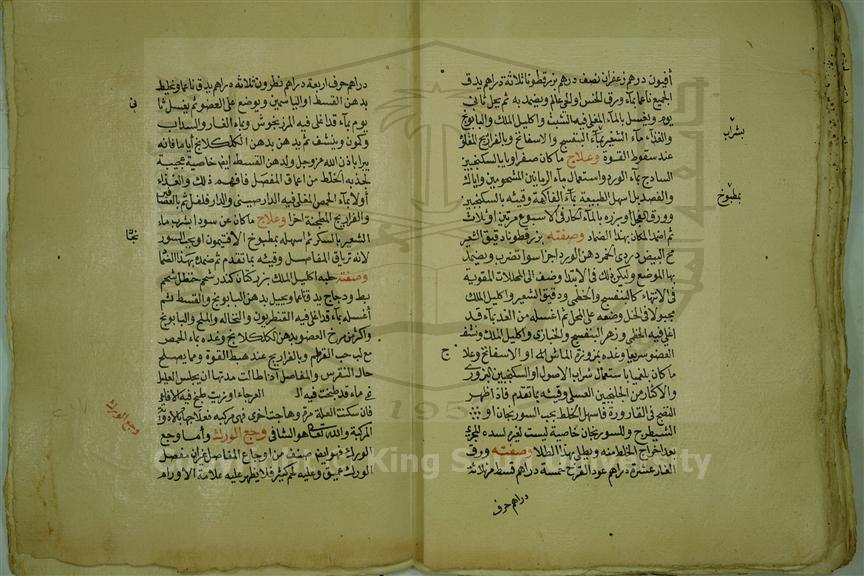 أفيون درهم زعفران نصف درهم بزرقطونا ثلاثة دراهم يدق
الجميع ناعما بماء ورق الخس ويضمد به ثم يحل ثاني
يوم ويغسل بالماء المغلي فيه الشبث واكليل الملك والبابونج
والغذاء ماء الشعير بماء البنفسج والاسفاناخ وبالفراريج
عند سقوط القوة وعلاج ما كان صفراويا بالسكنجبين
الساذج بماء الورد واستعمال ماء الرمانين المشحومين واياك
والفصد بل اسهل الطبيعة بماء الفاكهة وقيئه بالسكنجبين
وورق الفجل وبزره بالماء الحار في الاسبوع مرتين او ثلاث
ثم اضمد المكان بهذا الضماد وصفته بزرقطونا دقيق الشعير
مح البيض دردي الخمر دهن الورد اجزا سوا تضرب ويضمد
بها الموضع وليكن ذلك في الابتدا وضف الى المحللات المقوية
في الانتهاء كالبنفسج والخطمي ودقيق الشعير واكليل الملك
مجبولا في الخل وضعه على المحل ثم اغسله من الغد بماء قد
اغلي فيه الخطمي وزهر البنفسج والخبازى واكليل الملك ونشف
العضو سريعا وغده بمزورة الماش او الاسفاناخ وعلاج
ما كان بلغميا باستعمال شراب الاصول او السكنجبين البزورى
والاكثار من الجلنجبين العسلي وقيئه بما تقدم فاذا ظهر
النضج في القارورة فاسهل الخلط بحب السورنجان او
الشيطرج وللسورنجان خاصية ليست لغيره لسده المجرى
بعد اخراج الخلط منه ويطلى بهذا الطلا وصفته ورق
الغار عشرة دراهم عود القرح خمسة دراهم قسط مر ثلاثة
دراهم حرف
بشراب
بمطبوخ
دراهم حرف اربعة دراهم نطرون ثلاثة دراهم يدق ناعما ويخلط
بدهن القسط او الياسمين ويوضع على العضو ثم يغسل ثا
ني
يوم بماء قد اغلي فيه المرزنجوش وماء الغار والسداب
وكمون وينشف ثم يدهن بدهن الكلكلانج اياما فانه
يبرا باذن الله عز وجل ولدهن القسط ايضا خاصية عجيبة
لجذبه الخلط من اعماق المفصل فافهم ذلك والغذاء
أولا بماء الحمص المغلي فيه الدارصيني والدارفلفل ثم
والفراريج المطجنة اخرا وعلاج ما كان عن سودا بشرب ماء
الشعير بالسكر ثم اسهله بمطبوخ الافتيمون او بحب السور
نجان
لانه ترياق المفاصل وقيئه بما تقدم ثم ضمد بهذا الضماد
وصفته حلبه اكليل الملك بزركتان كندر شحم حنظل شحم
بط ودجاج يدق ناعما ويجبل بدهن البابونج والقسط ثم
أغسله بماء قد اغلي فيه القنطريون والنخاله والملح والبابونج
واكثر من مرخ العضو بدهن الكلكلانج وغده بماء الحمص
مع لب حب القرطم وبالفراريج عند هبط القوة ومما يصلح
حال النقرس والمفاصل اذا طالت مدتها ان يجلس العليل
في ماء قد طبخت فيه العرجاء او زيت طبخ فيه
فان سكنت العلة مرة وهاجت اخرى فهي مركبه فعلاجها بالادوية
المركبة والله تعالى هو الشافي وجع الورك وأما وجع
الورك فهو ايضا صنف من اوجاع المفاصل غير ان مفصل
الورك عميق وعليه لحم كثير فلا يظهر عليه علامة الاورام
وجع الورك
King University
195